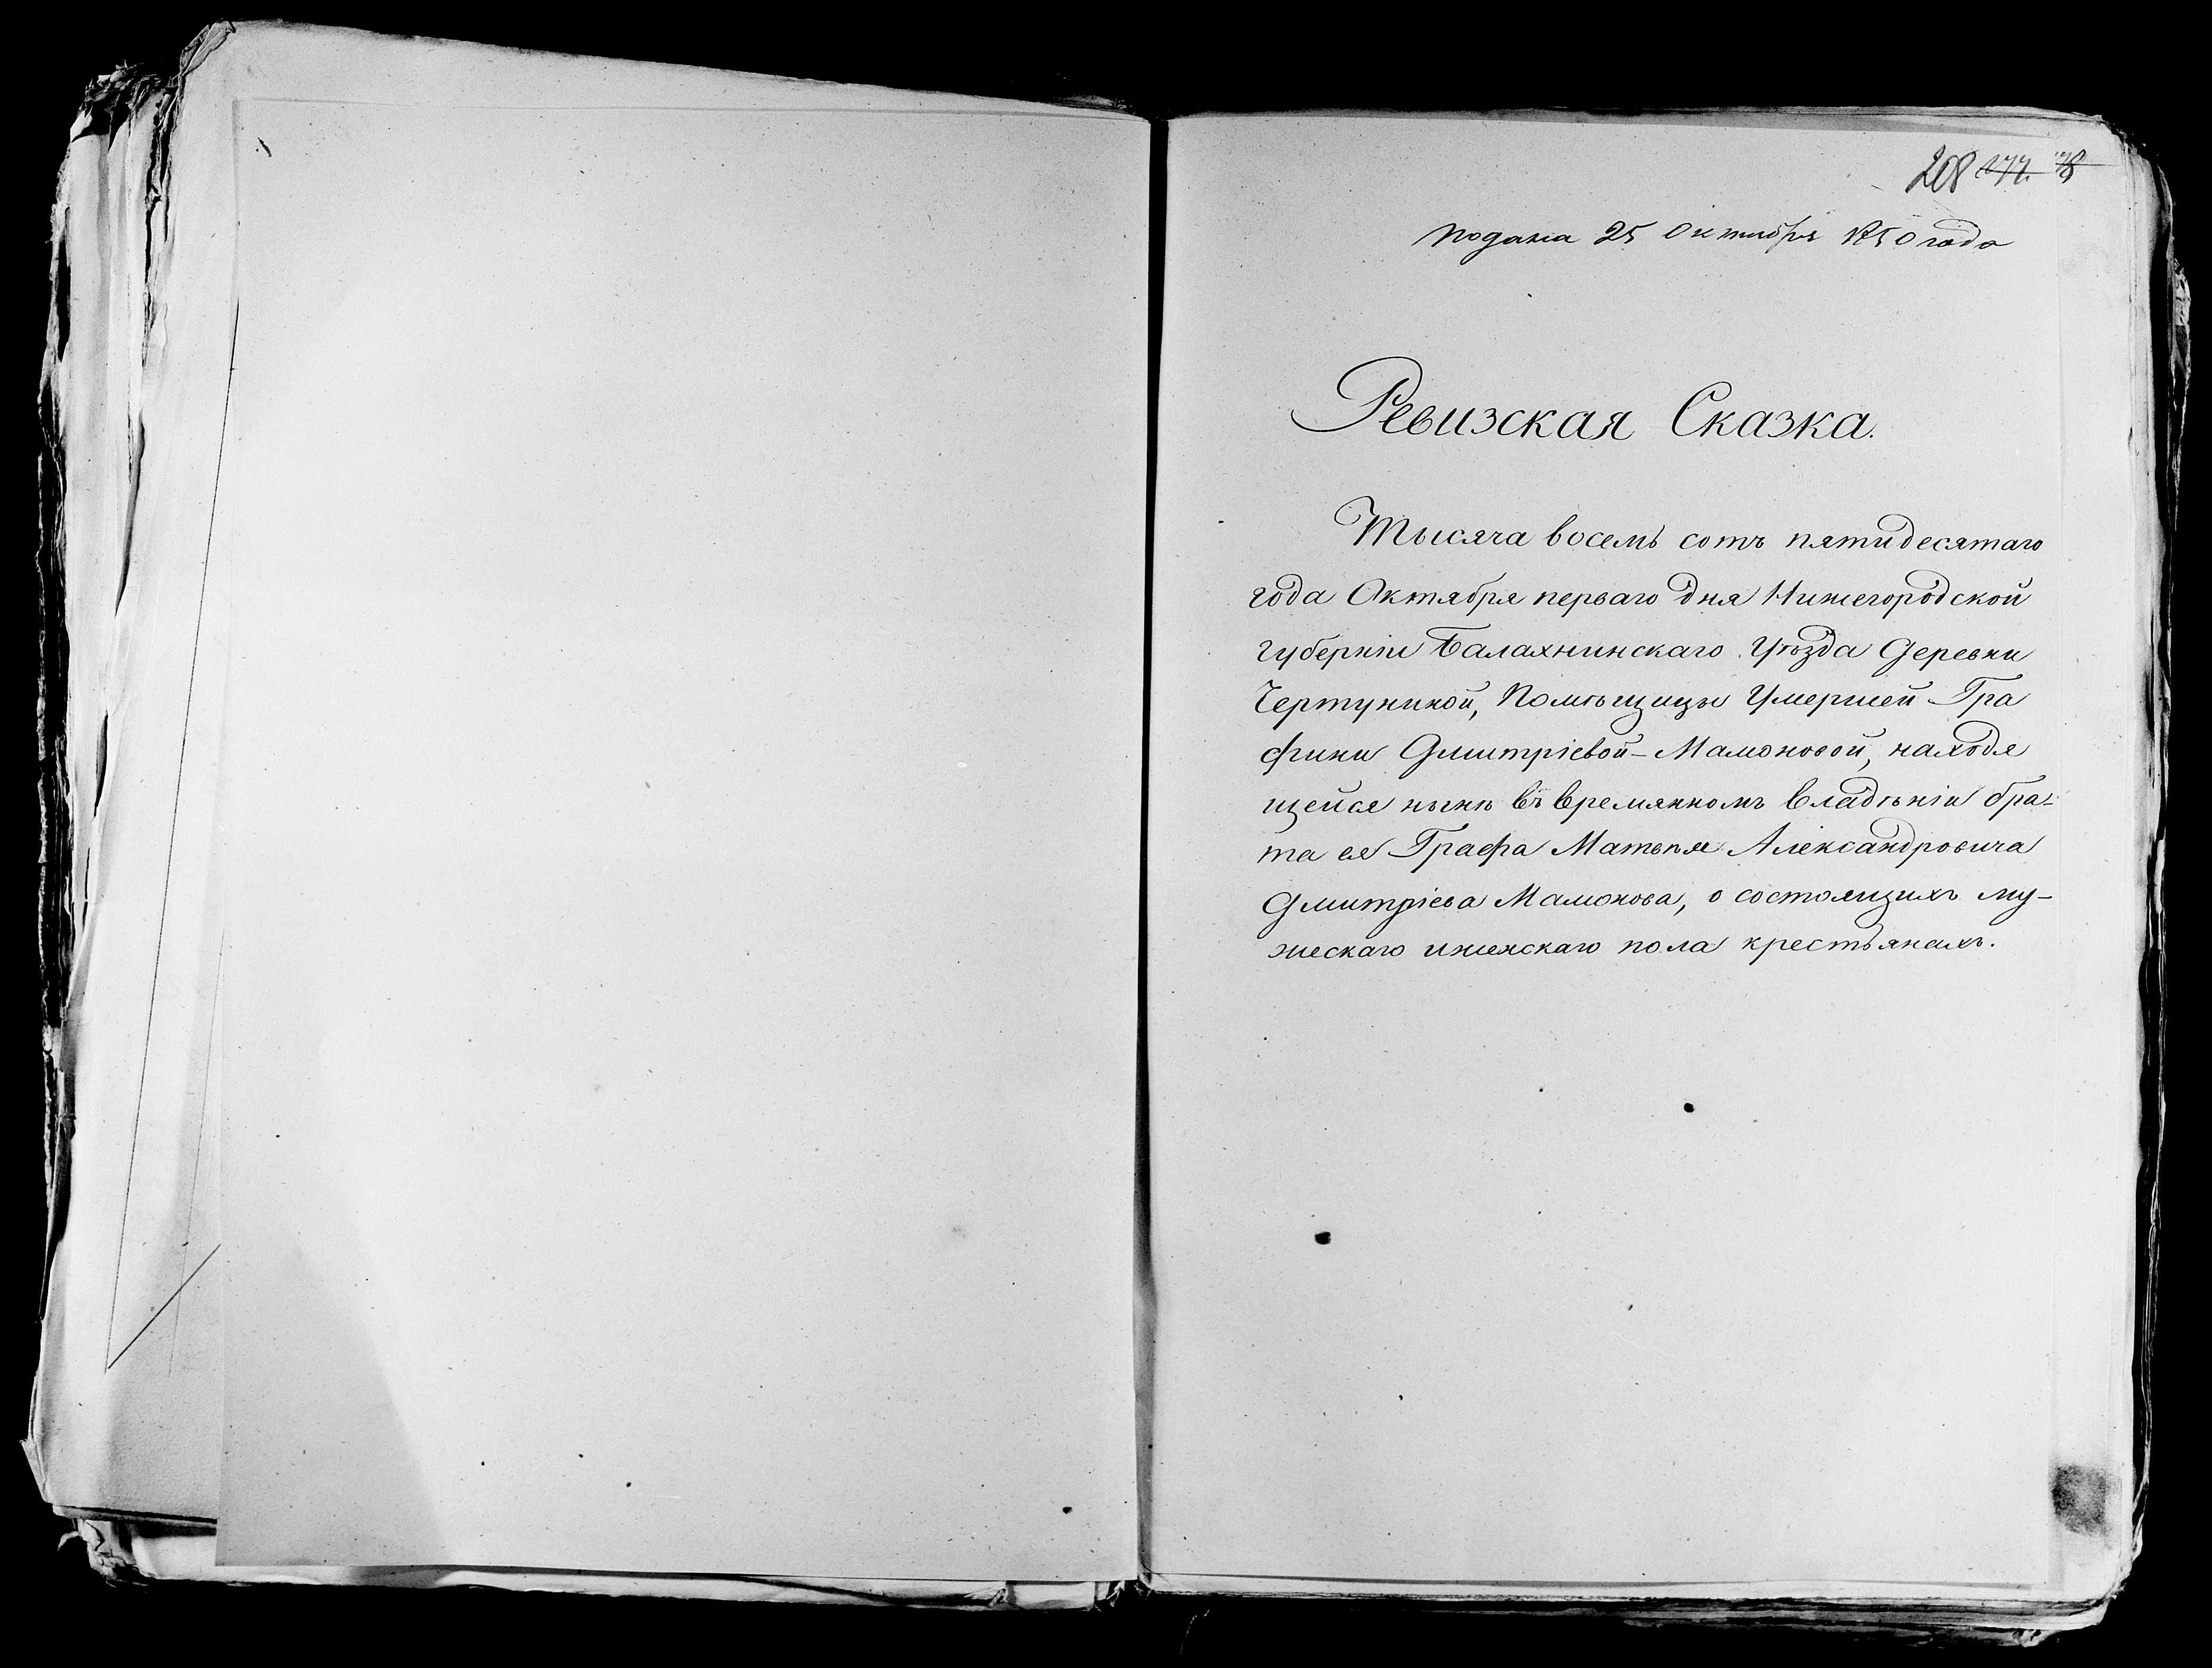 208 177. 78
подана 25 Октября 1850 года
Ревизская Сказка.
Тысяча восемь сотъ пятидесятаго
года Октября перваго дня Нижегородской
губерніи Балахнинскаго Уѣзда Деревни
Чертуниной, Помѣщицы Умершей Гра
фини Дмитріевой-Мамоновой, находя
щейся нынѣ въ времянномъ владѣніи бра-
та ея Графа Матвѣя Александровича
Дмитріева Мамонова, о состоящихъ му-
жескаго и женскаго пола крестьянахъ.